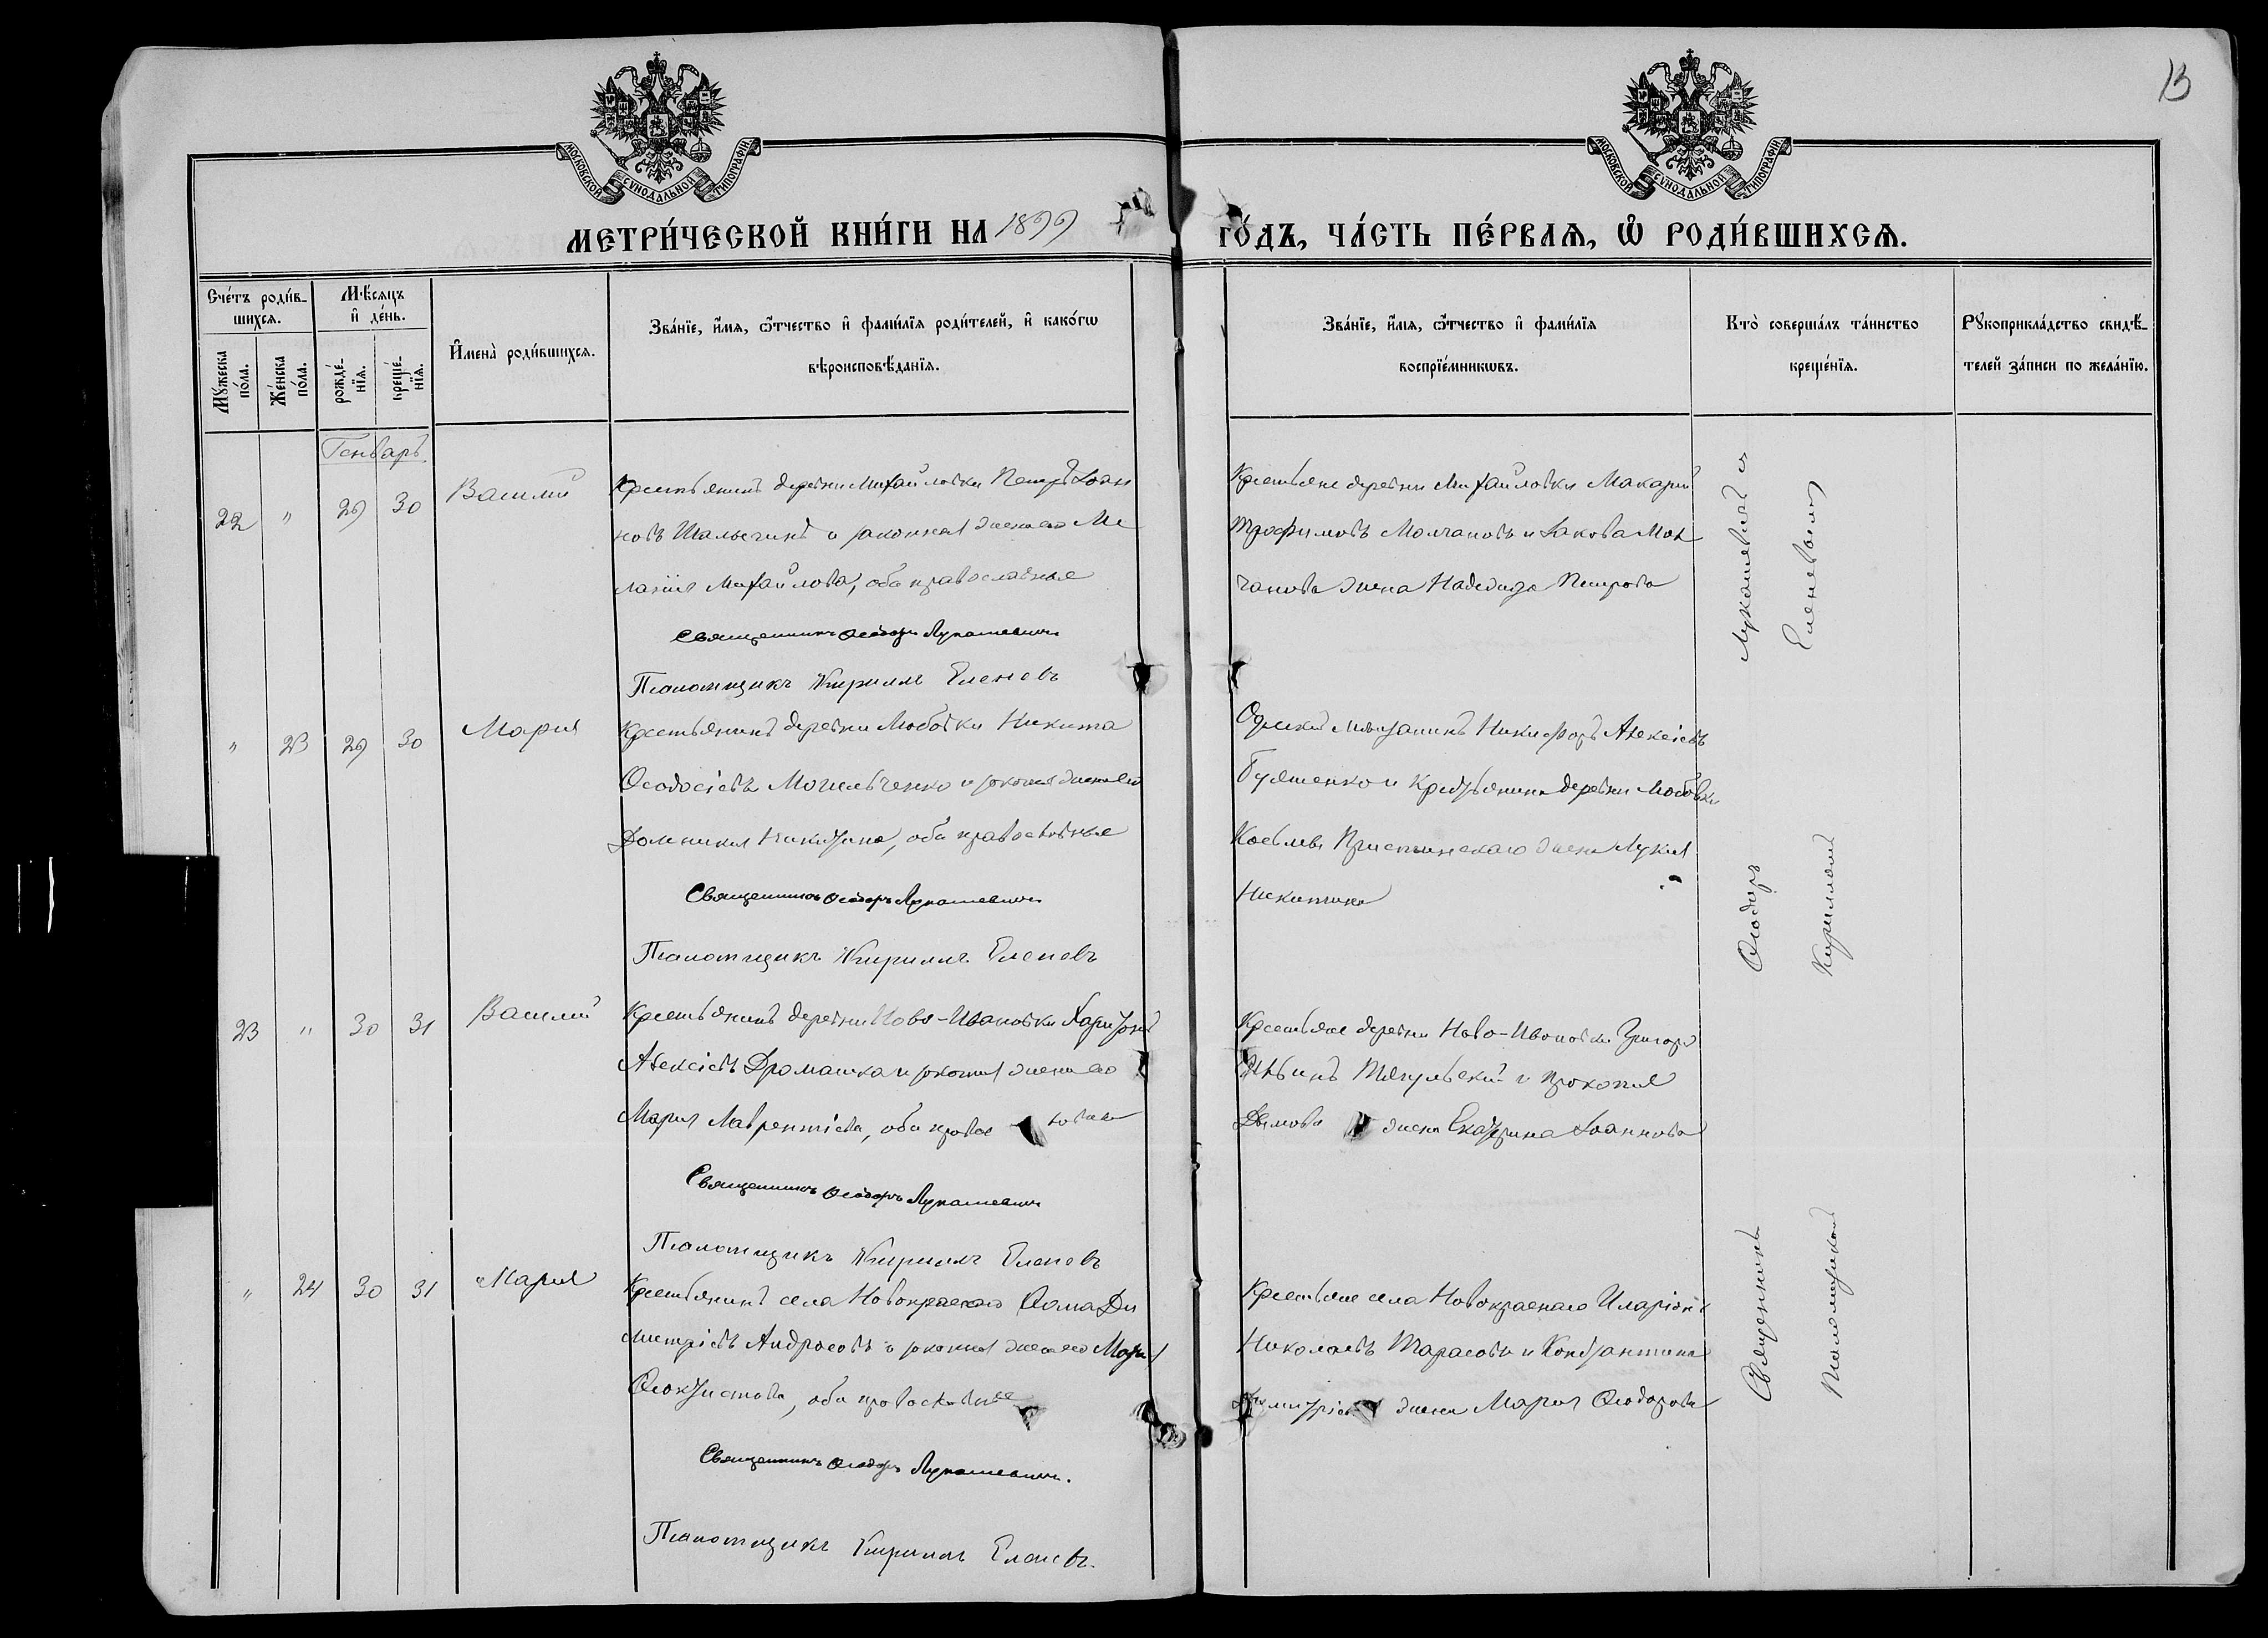 13
МОСКОВСКОЙ СѴНОДАЛЬНОЙ ТИПОГРАФІИ
МОСКОВСКОЙ СѴНОДАЛЬНОЙ ТИПОГРАФІИ
МЕТРИ́ЧЕСКОЙ КНИ́ГИ НА 1899 ГО́ДЪ, ЧА́СТЬ ПЕ́РВАЯ, Ѡ РОДИ́ВШИХСЯ.
Сче́тъ роди́в-
шихся.
Мꙋ́жеска по́ла.
Же́нска по́ла.
Мѣ́сяцъ и де́нь.
рожде́-
нїя.
креще́-
нїя.
Имена̀ роди́вшихся.
Зва́нїе, и́мя, ѻ́тчество и фами́лїя роди́телей, и како́гѡ
вѣроисповѣ́данїя.
Зва́нїе, и́мя, ѻ́тчество и фами́лїя
воспрїе́мникѡвъ.
Кто̀ соверша́лъ та́инство
креще́нїя.
Рꙋкоприкла́дство свидѣ́-
телей за́писи по жела́нїю.
Генварь
22 " 29 30 Василій
Крестьянинъ деревни Михайловки Петръ Іоан
новъ Шалыгинъ и законная жена его Ме
ланія Михайлова, оба православные
Священникъ Ѳеодоръ Лукашевичъ
Псаломщикъ Кириллъ Еленевъ
Крестьяне деревни Михайловки Макарий
Трофимовъ Молчановъ и Іакова Мол
чанова жена Надежда Петрова
" 23 29 30 Мария
Крестьянинъ деревни Любовки Никита
Ѳеодосіевъ Могильченко и законная жена его
Домникия Никитина, оба православные
Священникъ Ѳеодоръ Лукашевичъ
Псаломщикъ Кириллъ Еленевъ
мѣщанинъ Никифоръ Алексіевъ
и крестьянина деревни Любовки
жена Лукия
Никитина
23 " 30 31 Василий
Крестьянинъ деревни Ново-Ивановки Харитонъ
Алексіевъ Дромашка и законная жена его
Мария Лаврентіева, оба правос
Священникъ Ѳеодоръ Лукашевичъ
Псаломщикъ Кириллъ Еленевъ
Крестьяне деревни Ново-Ивановки Григорий
и Прокопия
Дымова жена Екатерина Іоаннова
" 24 30 31 Мария
Крестьянинъ села Новокраснаго Ѳома Ди
митріевъ Андросовъ и законная жена его Мария
Ѳеоктистова, оба православные
Священникъ Ѳеодоръ Лукашевичъ.
Псаломщикъ Кириллъ Еленевъ.
Крестьяне села Новокраснаго Иларіонъ
Николаевъ Тарасовъ и Константина
жена Мария Ѳеодорова
Священникъ Ѳеодоръ Лукашевичъ съ
Псаломщикомъ Кирилломъ Еленевымъ